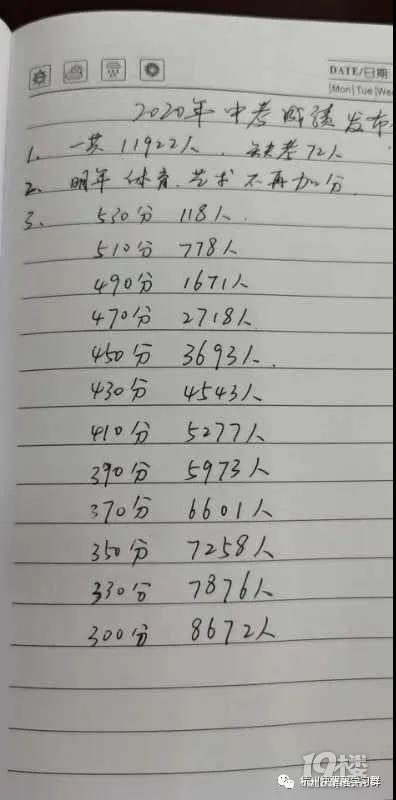 DATE/日期
Mon|Tue|We
2020年中考成绩发布
1. 一共11922人, 缺考72人
2. 明年体育、艺术不再加分
3. 530分 118人
510分 778人
490分 1671人
470分 2718人
450分 3693人
430分 4543人
410分 5277人
390分 5973人
370分 6601人
350分 7258人
330分 7876人
300分 8672人
19楼